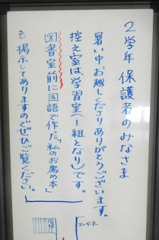 2学年 保護者のみなさま
暑い中お越しくださりありがとうございます。
控え室は学習室(1組となり)です。
図書室前に国語で作った「私のお薦め本」
を掲示してありますのでぜひご覧ください。